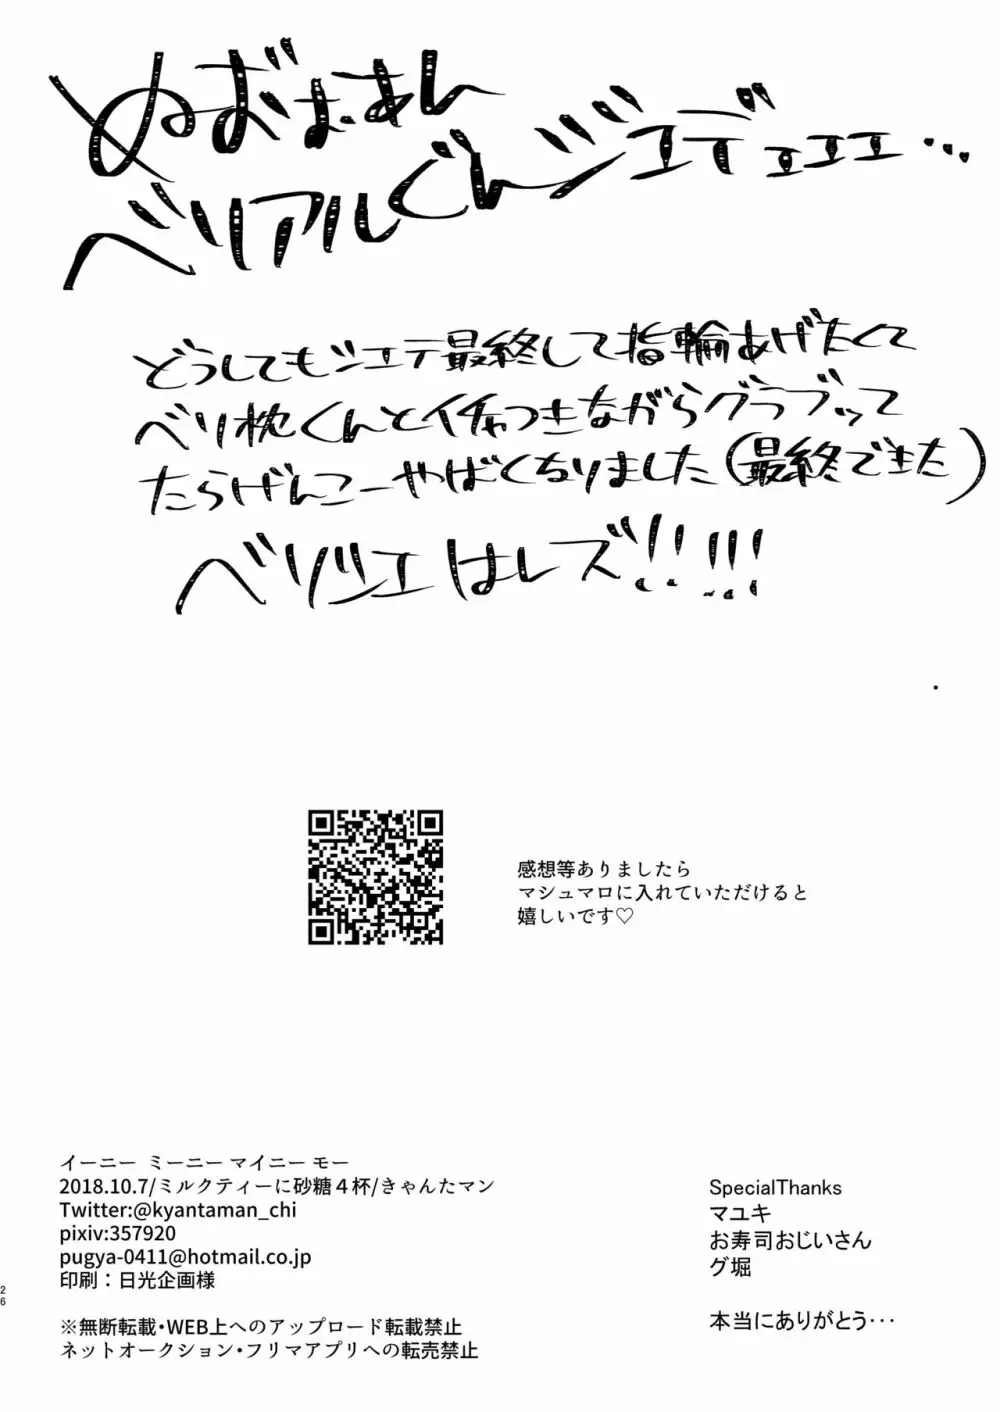 ぬおまあん
ベリアルぐんジエデェェェ…
どうしてもジエテ最終して指輪あげたくて
ベリ枕くんとイチャつきながらグラブッて
たらげんこーやばくなりました(最終できた)
ベリジエはレズ!!!!!
感想等ありましたら
マシュマロに入れていただけると
嬉しいです♡
イーニー ミーニー マイニー モー
2018.10.7/ミルクティーに砂糖4杯/きゃんたマン
Twitter:@kyantaman_chi
pixiv:357920
pugya-0411@hotmail.co.jp
印刷:日光企画様
※無断転載・WEB上へのアップロード転載禁止
ネットオークション・フリマアプリへの転売禁止
SpecialThanks
マユキ
お寿司おじいさん
グ堀
本当にありがとう・・・
26